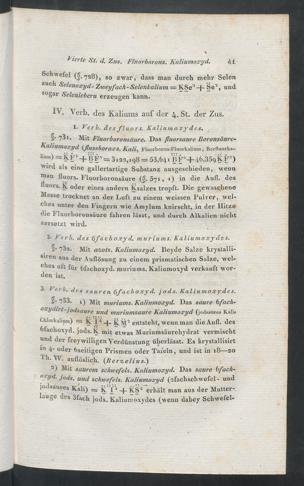 Vierte St. d. Zus. Fluorborons. Kaliumoxyd. 41
Schwefel (§. 728), so zwar, dass man durch mehr Selen
auch Selenoxyd-Zweyfach-Selenkalium = und
sogar Selenlebern erzeugen kann.
IV. Verb. des Kaliums auf der 4. St. der Zus.
1. Verb. des fluors. Kaliumoxydes.
§. 731. Mit Fluorboronsäure. Das fluorsaure Boronsäure-
Kaliumoxyd (fluoboraxs. Kali, Fluorboron-Fluorkalium, Borfluorka-
lium)
wird als eine gallertartige Substanz ausgeschieden, wenn
man fluors. Fluorboronsäure (§. 571, 1) in die Aufl. des
fluors. K oder eines andern Ksalzes tropft. Die gewaschene
Masse trocknet an der Luft zu einem weissen Pulver, wel-
ches unter den Fingern wie Amylum knirscht, in der Hitze
die Fluorboronsäure fahren lässt, und durch Alkalien nicht
zersetzt wird.
2. Verb. des 6fachoxyd. muriums. Kaliumoxydes.
§. 732. Mit azots. Kaliumoxyd. Beyde Salze krystalli-
siren aus der Auflösung zu einem prismatischen Salze, wel-
ches oft für 6fachoxyd. muriums. Kaliomoxyd verkauft wor-
den ist.
3. Verb. des sauren 6fachoxyd. jods. Kaliumoxydes.
§. 733. 1) Mit muriums. Kaliumoxyd. Das saure 6fach-
oxydirt-jodsaure und muriumsaure Kaliumoxyd (jodsaures Kalis
Chlorkalium) = entsteht, wenn man die Aufl. des
6fachoxyd. jods. K mit etwas Muriumsäurehydrat vermischt
und der freywilligen Verdünstung überlässt. Es krystallisirt
in 4- oder 6seitigen Prismen oder Tafeln, und ist in 18—20
Th. W. auflöslich. (Berzelius.)
2) Mit saurem schwefels. Kaliumoxyd. Das saure 6fach-
oxyd. jods. und schwefels. Kaliumoxyd (2fachschwefel- und
jodsaures Kali) = erhält man aus der Mutter-
lauge des 3fach jods. Kaliumoxydes (wenn dabey Schwefel-